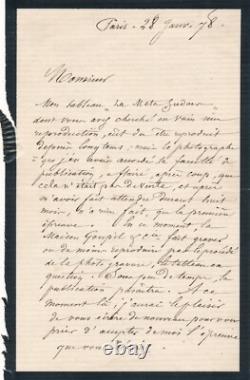 Paris - 28 Janv. 78.
Monsieur
Mon tableau "La Meta Sudans"
dont vous avez cherché en vain une
reproduction, eût dû être reproduit
depuis longtems; mais le photographe
qui j'en avais accordé la faculté de
publication, affaire, après coup, que
cela n'était pas de vente, et après
m'avoir fait attendre durant huit
mois, il n'a rien fait, que la première
épreuve. En ce moment la
Maison Goupil le fait graver
ou du moins reproduire par le procédé
de la photogravure, le tableau en
question. Sous peu de temps, la
publication paraîtra. A ce
moment là j'aurai le plaisir
de vous écrire de nouveau pour vous
prier d'accepter de moi l'épreuve
que vous